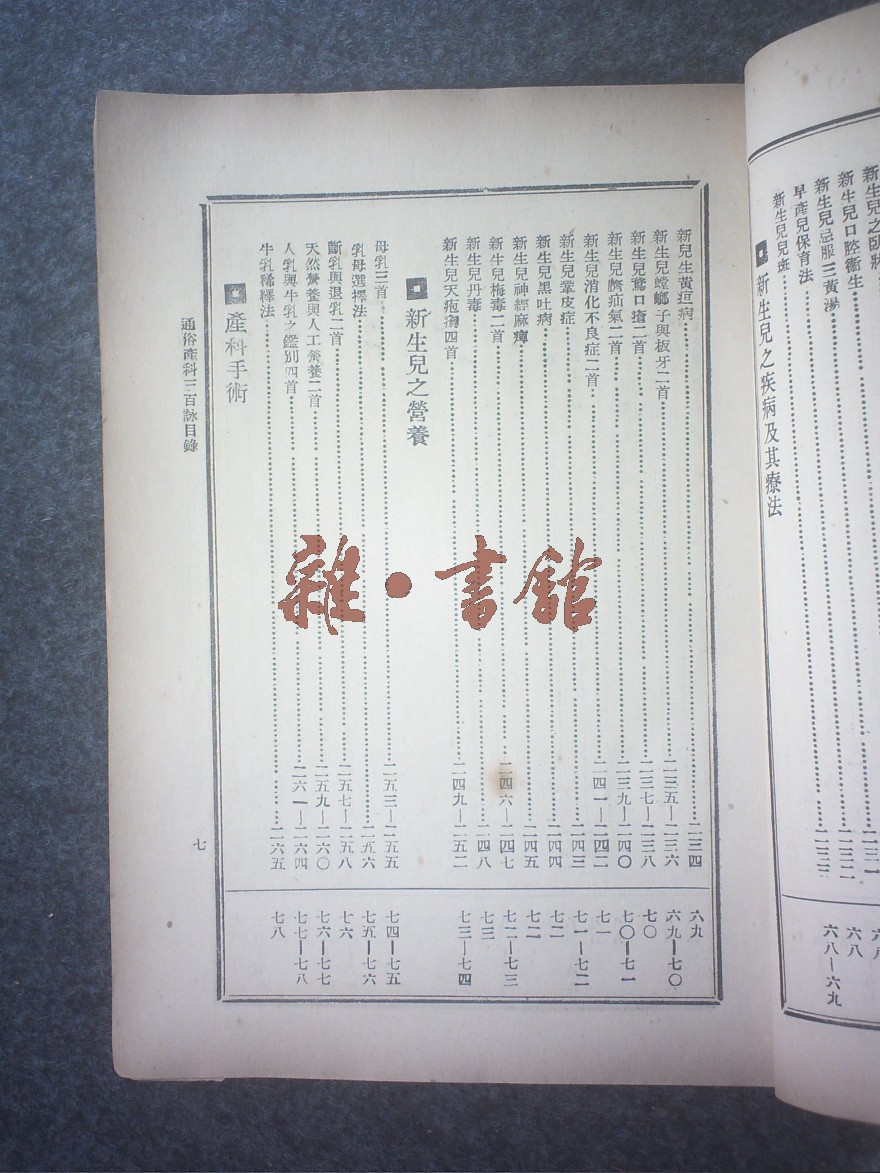 新生兒口腔衛生 六八
新生兒忌服三黃湯 六八—六九
早產兒保育法
新生兒兒斑
新生兒之疾病及其療法
新兒生黃疸病 二三四 六九
新生兒螳螂子與板牙二首 二三五—二三六 六九—七〇
新生兒鵞口瘡二首 二三七—二三八 七〇
新生兒臍疝氣二首 二三九—二四〇 七〇—七一
新生兒消化不良症二首 二四一—二四二 七一
新生兒鞏皮症 二四三 七一—七二
新生兒黑吐病 二四四 七二
新生兒神經麻痺 二四五 七二
新生兒梅毒二首 二四六—二四七 七二—七三
新生兒丹毒 二四八 七三
新生兒天疱瘡四首 二四九—二五二 七三—七四
新生兒之營養
母乳三首 二五三—二五五 七四—七五
乳母選擇法 二五六 七五—七六
斷乳與退乳二首 二五七—二五八 七六
天然營養與人工營養二首 二五九—二六〇 七六—七七
人乳與牛乳之鑑別四首 二六一—二六四 七七—七八
牛乳稀釋法 二六五 七八
產科手術
通俗產科三百詠目錄
七
雜·書館